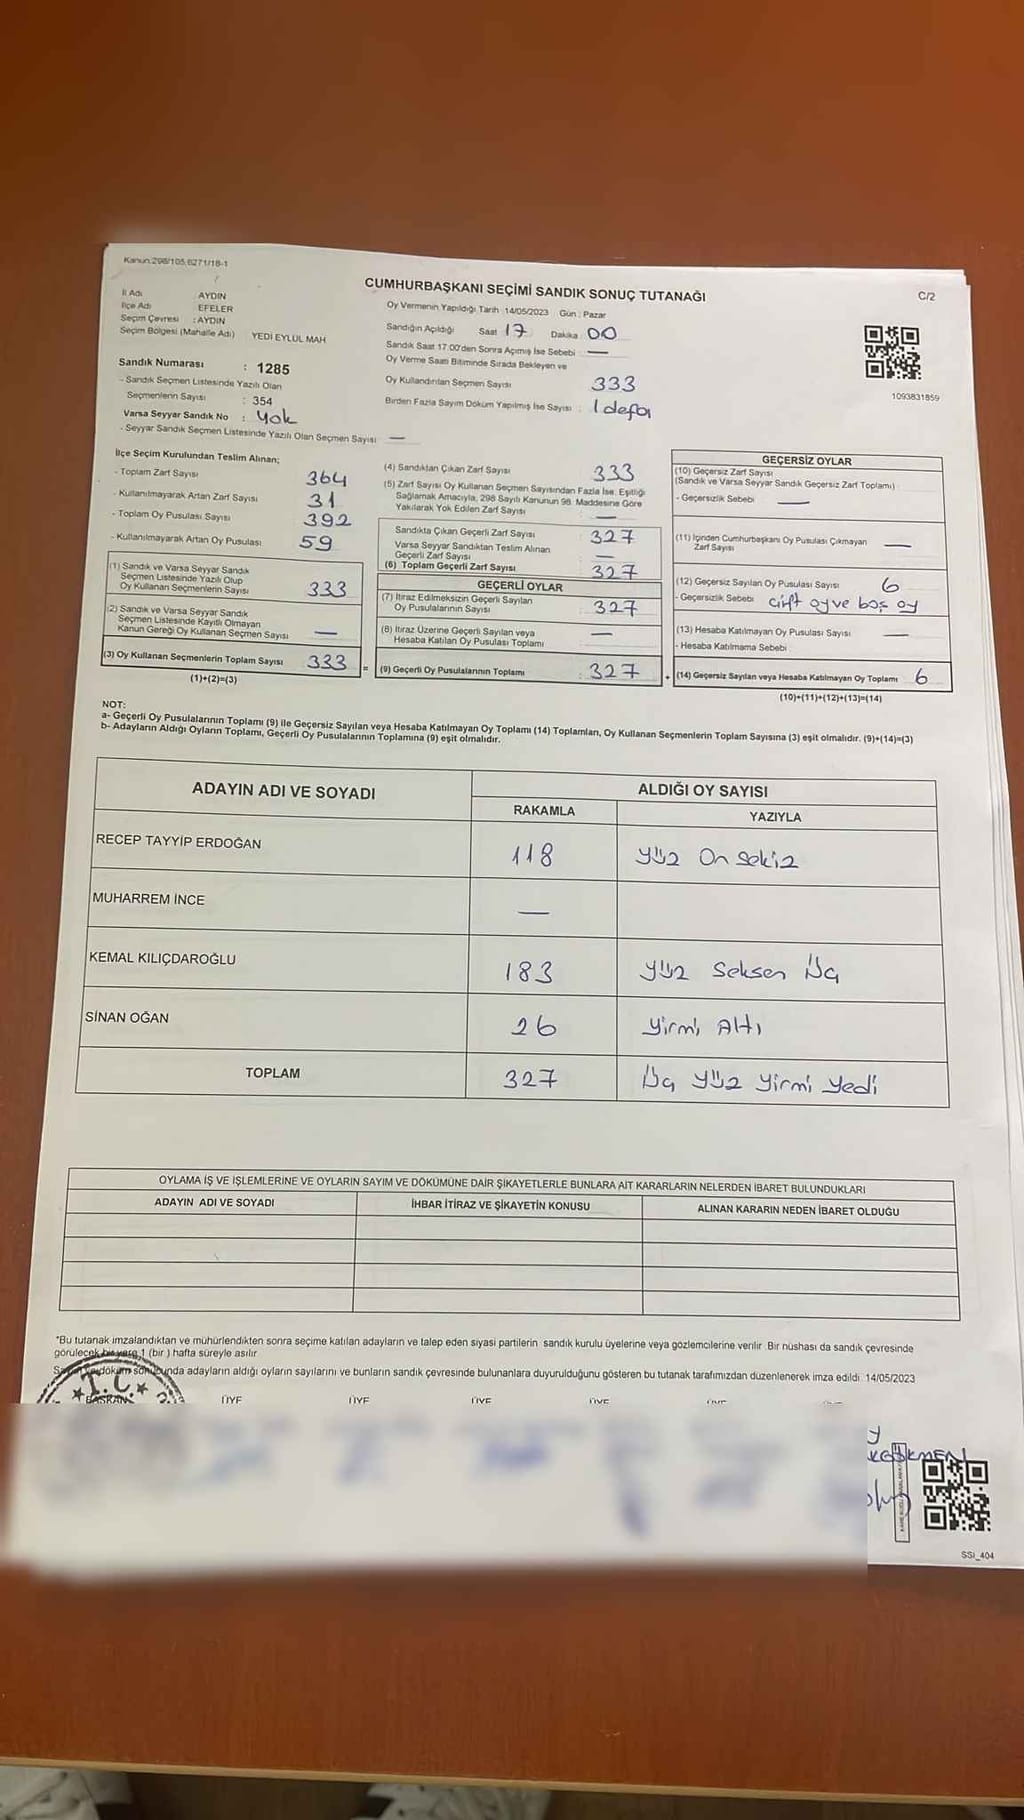 Kanun:298/105,6271/18-1
CUMHURBAŞKANI SEÇİMİ SANDIK SONUÇ TUTANAĞI
C/2
İl Adı AYDIN
İlçe Adı EFELER
Seçim Çevresi : AYDIN
Seçim Bölgesi (Mahalle Adı) YEDİ EYLÜL MAH
Sandık Numarası : 1285
- Sandık Seçmen Listesinde Yazılı Olan
Seçmenlerin Sayısı : 354
Varsa Seyyar Sandık No : Yok
- Seyyar Sandık Seçmen Listesinde Yazılı Olan Seçmen Sayısı —
Oy Vermenin Yapıldığı Tarih 14/05/2023 Gün : Pazar
Sandığın Açıldığı Saat 17 Dakika 00
Sandık Saat 17:00'den Sonra Açımış İse Sebebi —
Oy Verme Saati Bitiminde Sırada Bekleyen ve
Oy Kullandırılan Seçmen Sayısı 333
Birden Fazla Sayım Döküm Yapılmış İse Sayısı : 1 defa
1093831859
İlçe Seçim Kurulundan Teslim Alınan;
- Toplam Zarf Sayısı 364
- Kullanılmayarak Artan Zarf Sayısı 31
- Toplam Oy Pusulası Sayısı 392
- Kullanılmayarak Artan Oy Pusulası 59
(1) Sandık ve Varsa Seyyar Sandık
Seçmen Listesinde Yazılı Olup
Oy Kullanan Seçmenlerin Sayısı 333
(2) Sandık ve Varsa Seyyar Sandık
Seçmen Listesinde Kayıtlı Olmayan
Kanun Gereği Oy Kullanan Seçmen Sayısı —
(3) Oy Kullanan Seçmenlerin Toplam Sayısı 333 =
(1)+(2)=(3)
(4) Sandıktan Çıkan Zarf Sayısı 333
(5) Zarf Sayısı Oy Kullanan Seçmen Sayısından Fazla İse, Eşitliği
Sağlamak Amacıyla, 298 Sayılı Kanunun 98. Maddesine Göre
Yakılarak Yok Edilen Zarf Sayısı —
Sandıkta Çıkan Geçerli Zarf Sayısı 327
Varsa Seyyar Sandıktan Teslim Alınan
Geçerli Zarf Sayısı —
(6) Toplam Geçerli Zarf Sayısı 327
GEÇERLİ OYLAR
(7) İtiraz Edilmeksizin Geçerli Sayılan
Oy Pusulalarının Sayısı 327
(8) İtiraz Üzerine Geçerli Sayılan veya
Hesaba Katılan Oy Pusulası Toplamı —
(9) Geçerli Oy Pusulalarının Toplamı : 327 +
GEÇERSİZ OYLAR
(10) Geçersiz Zarf Sayısı
(Sandık ve Varsa Seyyar Sandık Geçersiz Zarf Toplamı)
- Geçersizlik Sebebi —
(11) İçinden Cumhurbaşkanı Oy Pusulası Çıkmayan
Zarf Sayısı —
(12) Geçersiz Sayılan Oy Pusulası Sayısı 6
- Geçersizlik Sebebi çift oy ve boş oy
(13) Hesaba Katılmayan Oy Pusulası Sayısı —
- Hesaba Katılmama Sebebi
(14) Geçersiz Sayılan veya Hesaba Katılmayan Oy Toplamı 6
(10)+(11)+(12)+(13)=(14)
NOT:
a- Geçerli Oy Pusulalarının Toplamı (9) ile Geçersiz Sayılan veya Hesaba Katılmayan Oy Toplamı (14) Toplamları, Oy Kullanan Seçmenlerin Toplam Sayısına (3) eşit olmalıdır. (9)+(14)=(3)
b- Adayların Aldığı Oyların Toplamı, Geçerli Oy Pusulalarının Toplamına (9) eşit olmalıdır.
ADAYIN ADI VE SOYADI ALDIĞI OY SAYISI
RAKAMLA YAZIYLA
RECEP TAYYİP ERDOĞAN 118 Yüz On Sekiz
MUHARREM İNCE —
KEMAL KILIÇDAROĞLU 183 Yüz Seksen Üç
SİNAN OĞAN 26 Yirmi Altı
TOPLAM 327 Üç Yüz Yirmi Yedi
OYLAMA İŞ VE İŞLEMLERİNE VE OYLARIN SAYIM VE DÖKÜMÜNE DAİR ŞİKAYETLERLE BUNLARA AİT KARARLARIN NELERDEN İBARET BULUNDUKLARI
ADAYIN ADI VE SOYADI İHBAR İTİRAZ VE ŞİKAYETİN KONUSU ALINAN KARARIN NEDEN İBARET OLDUĞU
*Bu tutanak imzalandıktan ve mühürlendikten sonra seçime katılan adayların ve talep eden siyasi partilerin sandık kurulu üyelerine veya gözlemcilerine verilir. Bir nüshası da sandık çevresinde
görülecek bir yere 1 (bir ) hafta süreyle asılır.
Sayım ve döküm sonucunda adayların aldığı oyların sayılarını ve bunların sandık çevresinde bulunanlara duyurulduğunu gösteren bu tutanak tarafımızdan düzenlenerek imza edildi. 14/05/2023
T.C.
BAŞKAN ÜYE ÜYE ÜYE ÜYE
SSI_404